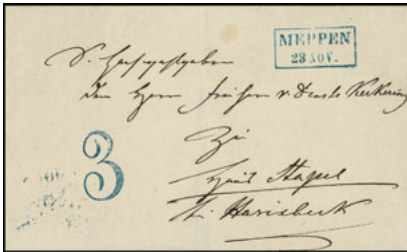 MEPPEN
23 NOV.
Sr. Hochwohlgeboren
dem Herrn Freiherrn v. Droste Kerkering
Zu
Haus Stapel
b. Havixbeck
3